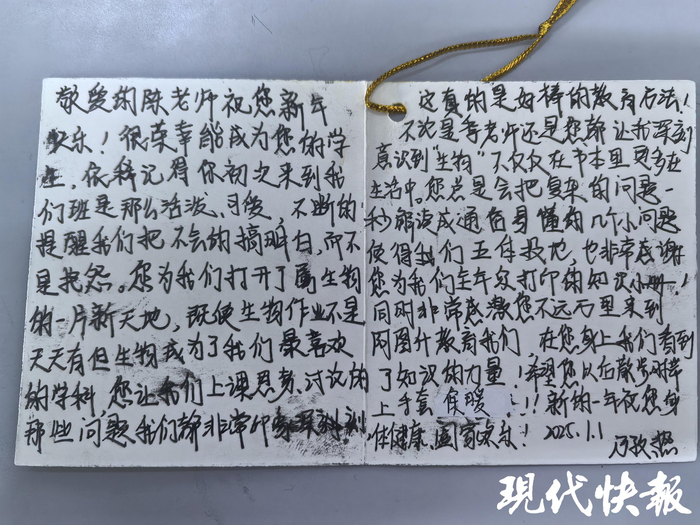 敬爱的陈老师祝您新年
快乐！很荣幸能成为您的学
生，依稀记得你初次来到我
们班是那么活泼、可爱，不断的
提醒我们把不会的搞明白，而不
是抱怨。您为我们打开了属生物
的一片新天地，既使生物作业不是
天天有但生物成为了我们最喜欢
的学科，您让我们上课思考、讨论的
那些问题我们都非常印象深刻
这真的是好棒的教育方法！
不论是季老师还是您都让我深刻
意识到“生物”不仅仅在书本里更多在
生活中。您总是会把复杂的问题一
秒解读成通俗易懂的几个小问题
使得我们五体投地，也非常感谢
您为我们全年级打印的知识小册！
同时非常感激您不远万里来到
阿图什教育我们，在您身上我们看到
了知识的力量！希望您以后教学时带
上手套保暖！！新的一年祝您身
体健康，阖家欢乐！2025.1.1
现代快报